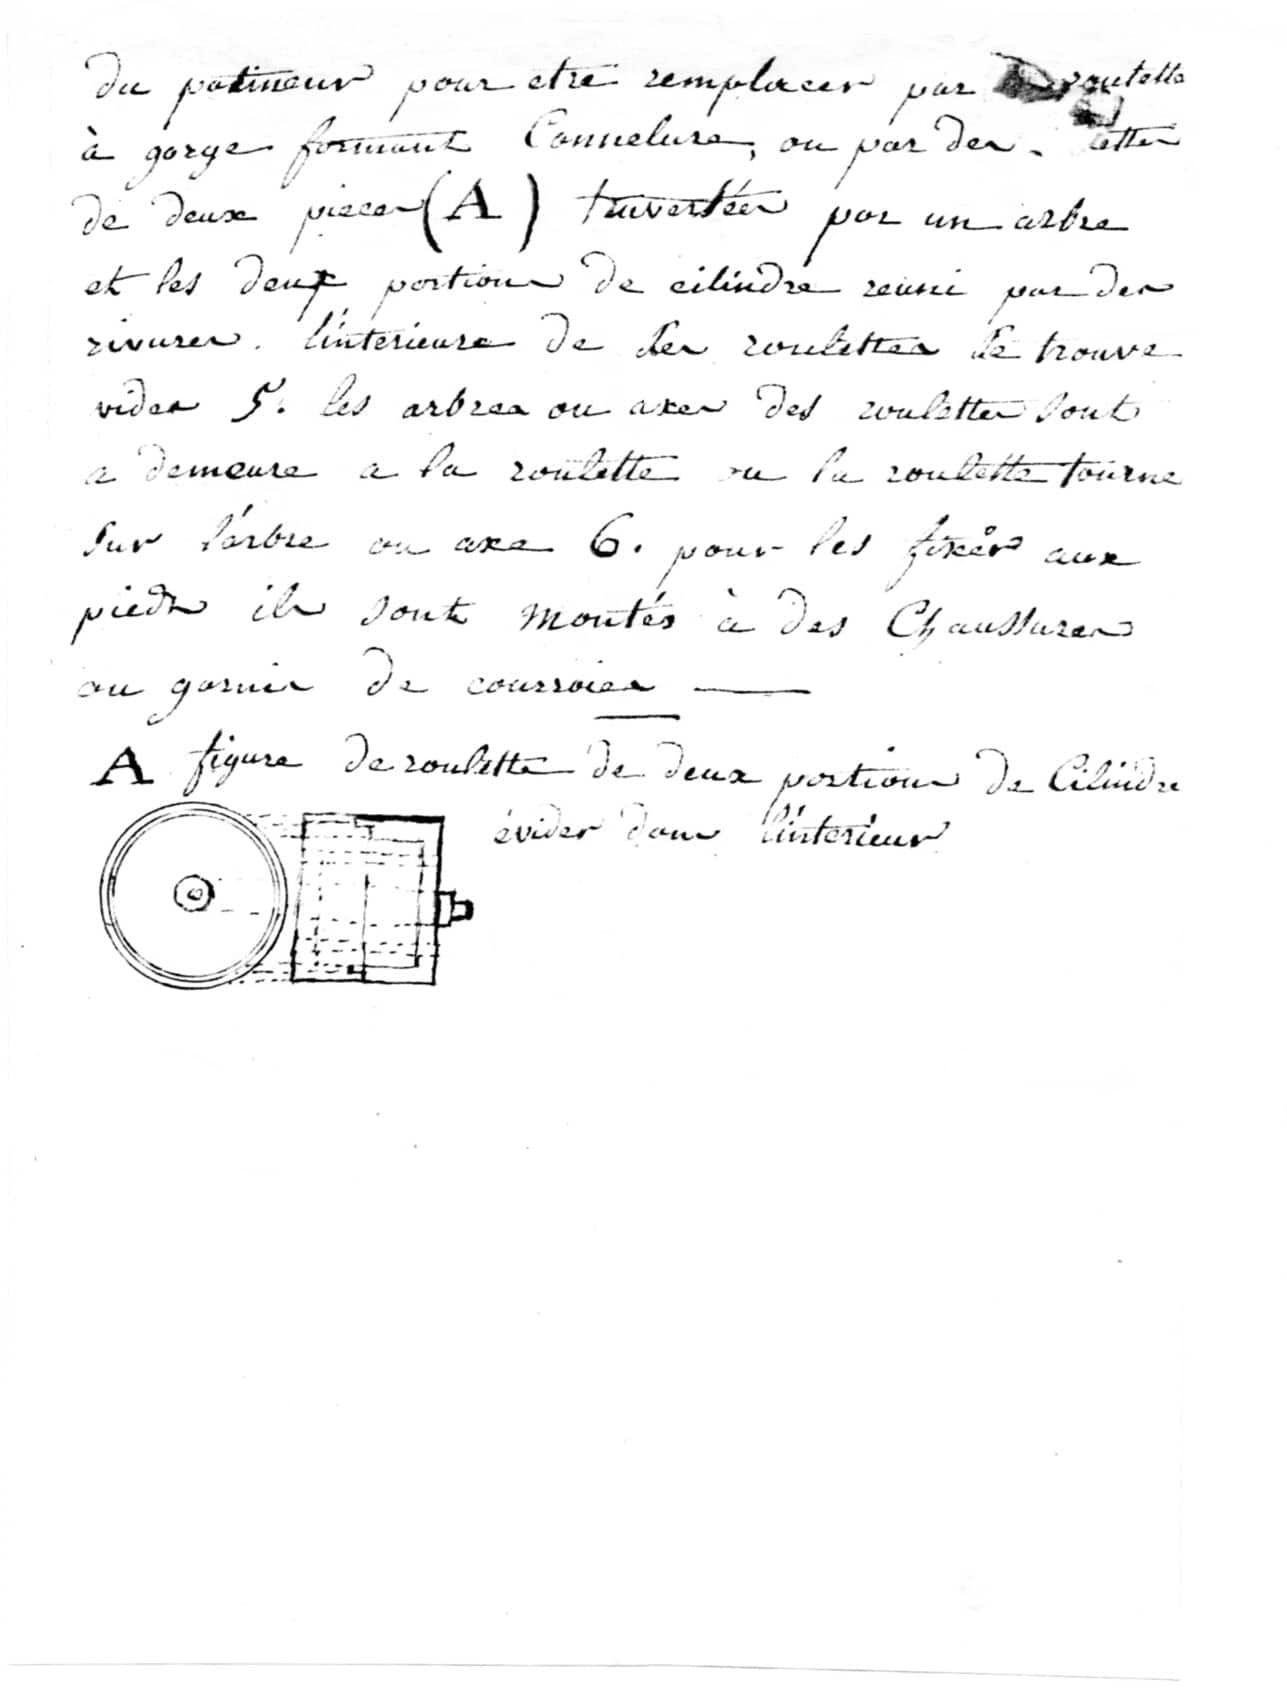 du patineur pour etre remplacer par roulette
à gorge formant Cannelure, ou par des
de deux pieces (A) traversées par un arbre
et les deux portions de cilindre reuni par des
rivures. l'interieure de ses roulettes se trouve
vides 5. les arbres ou axes des roulettes sont
a demeure a la roulette ou la roulette tourne
sur l'arbre ou axe 6. pour les fixér aux
pieds ils sont montés à des Chaussures
ou garnis de courroies
A figure de roulette de deux portions de Cilindre
évider dans l'interieur